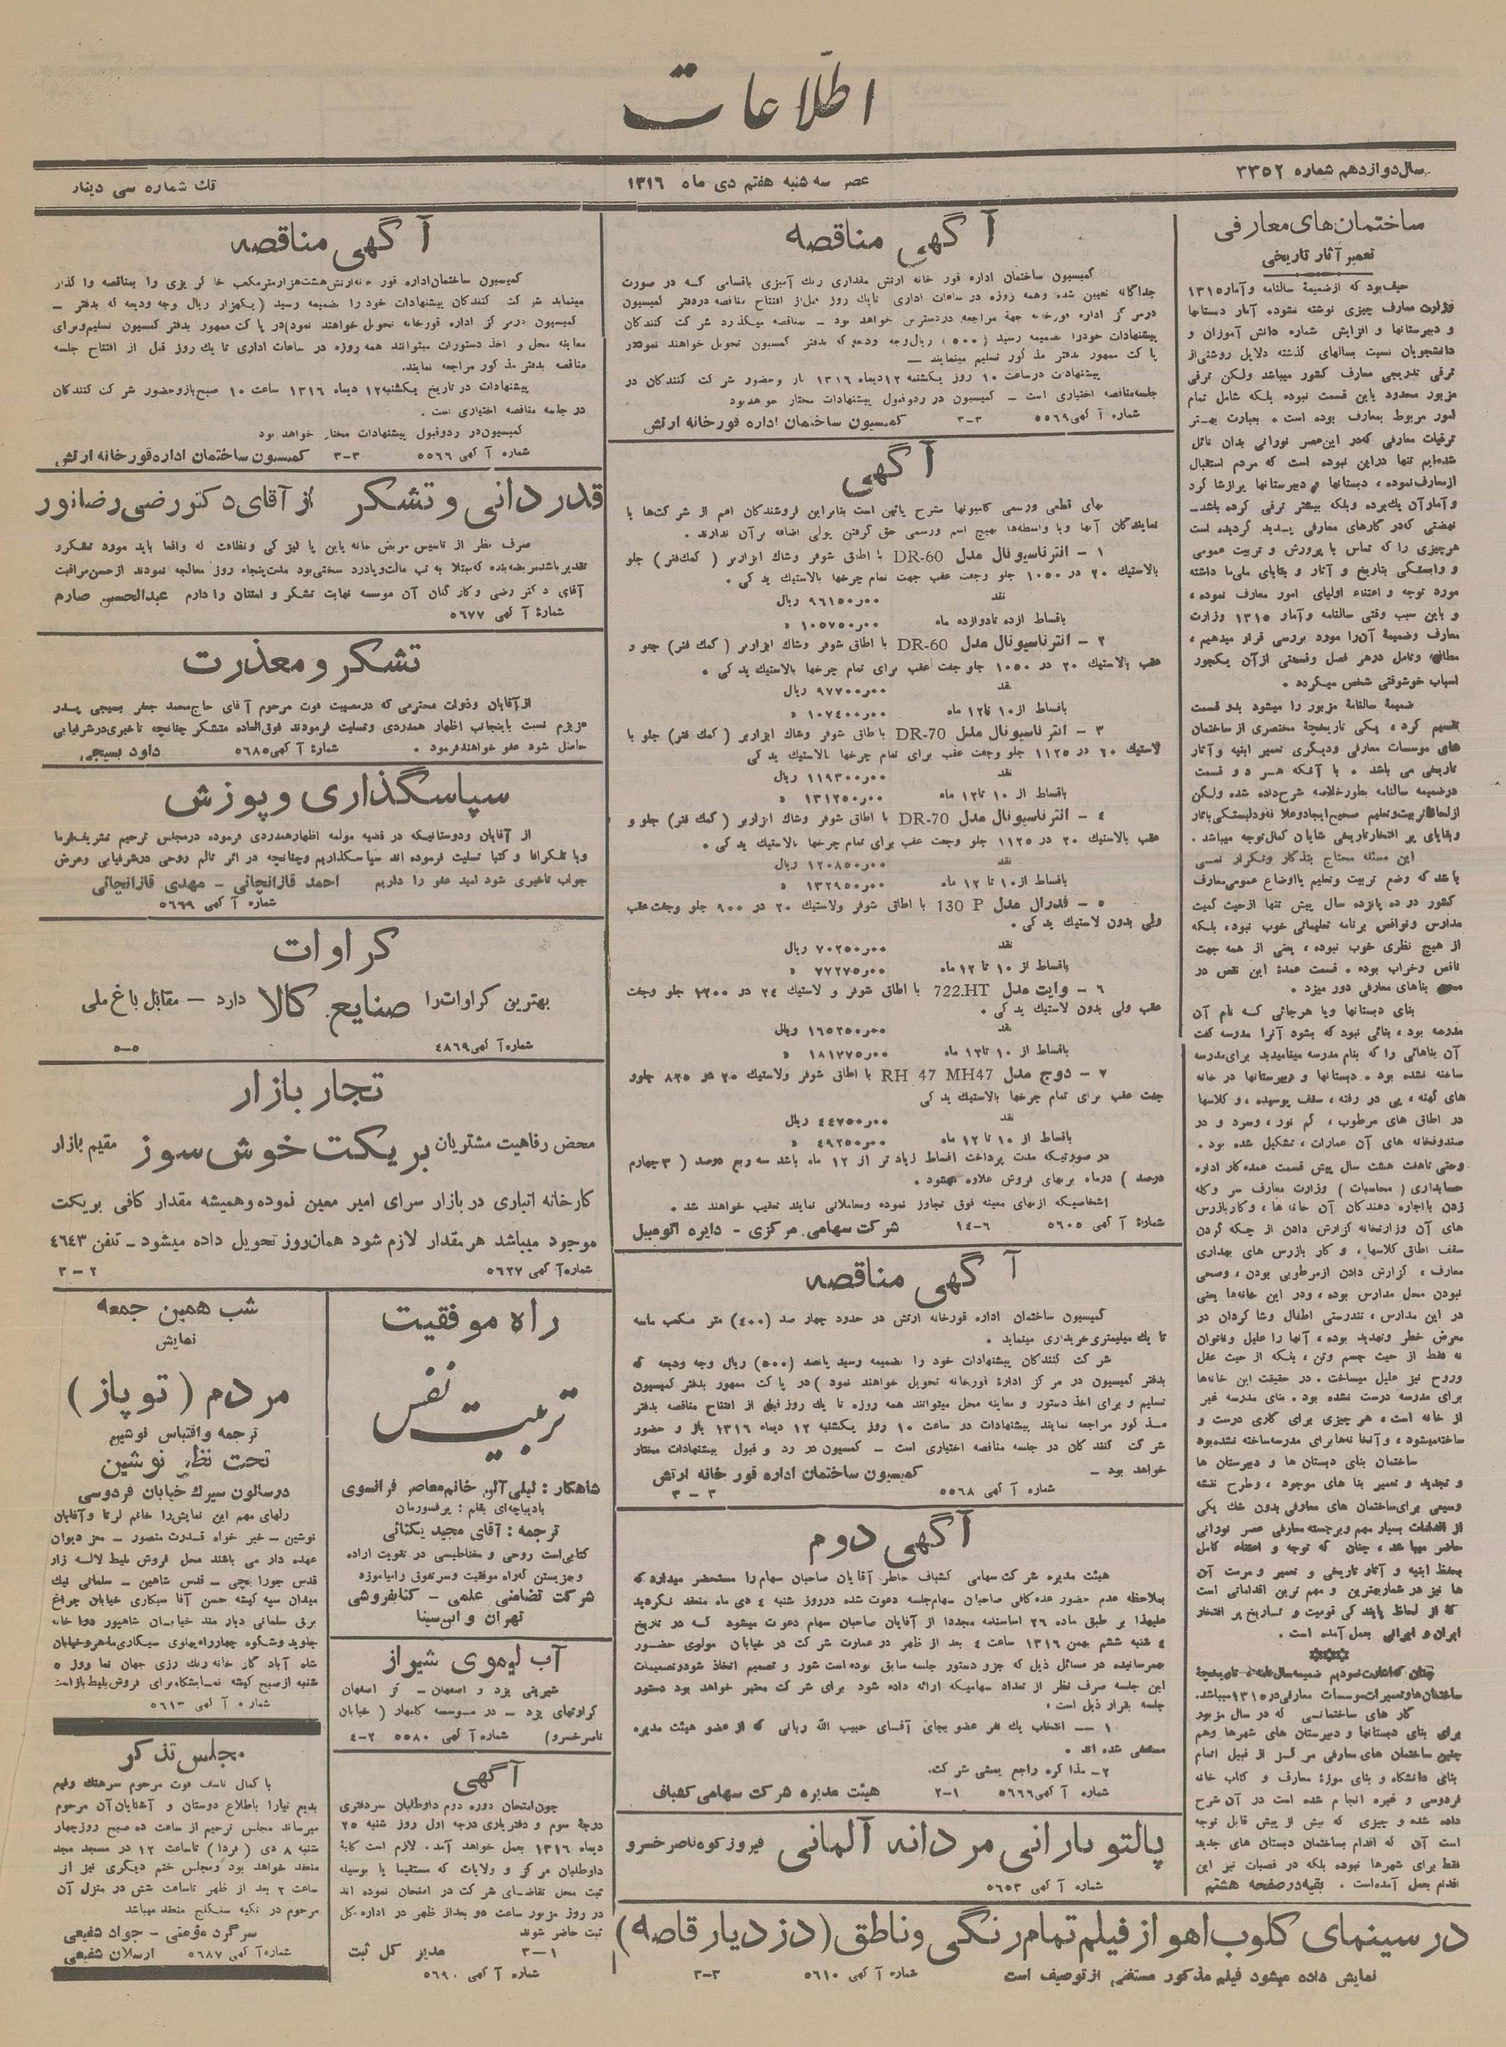 اطلاعات
سال دوازدهم شماره ۳۳۵۲
عصر سه شنبه هفتم دی ماه ۱۳۱۶
تك شماره سی دینار
ساختمان‌های معارفی
تعمیر آثار تاریخی
حیف بود که از ضمیمهٔ سالنامه و آمار ۱۳۱۵
وزارت معارف چیزی نوشته نشود، آمار دبستانها
و دبیرستانها و افزایش شماره دانش آموزان و
دانشجویان نسبت بسالهای گذشته دلایل روشنی از
ترقی تدریجی معارف کشور میباشد ولیکن ترقی
مزبور محدود باین قسمت نبوده بلکه شامل تمام
امور مربوط بمعارف بوده است. بعبارت بهتر
ترقیات معارفی که در این عصر نورانی بدان نائل
شده‌ایم تنها در این نبوده است که مردم استقبال
از معارف نموده، دبستانها و دبیرستانها پر از شاگرد
نهضتی که در کارهای معارفی پدید گردیده است
هر چیزی را که تماس با پرورش و تربیت عمومی
و وابستگی بتاریخ و آثار و بقایای ملی ما داشته
مورد توجه و اعتناء اولیای امور معارف نموده،
و باین سبب وقتی سالنامه و آمار ۱۳۱۵ وزارت
معارف و ضمیمهٔ آن را مورد بررسی قرار میدهیم،
مطالعه و تامل در هر فصل و قسمتی از آن یکجور
اسباب خوشوقتی شخص میگردد.
ضمیمهٔ سالنامهٔ مزبور را میشود بدو قسمت
تقسیم کرد، یکی تاریخچهٔ مختصری از ساختمان
های موسسات معارفی و دیگری تعمیر ابنیه و آثار
تاریخی می باشد. با آنکه هر دو قسمت
در ضمیمه سالنامه بطور خلاصه شرح داده شده ولیکن
و بقایای پر افتخار تاریخی شایان کمال توجه میباشد.
این مسئله محتاج بتذکار و تکرار نمی
باشد که وضع تربیت و تعلیم یا اوضاع عمومی معارف
کشور در ده پانزده سال پیش تنها از حیث کمیت
مدارس و نواقص برنامه تعلیماتی خوب نبود، بلکه
از هیچ نظری خوب نبوده، یعنی از همه جهت
ناقص و خراب بوده. قسمت عمدهٔ این نقص در
بناهای معارفی دور میزد.
بنای دبستانها و یا هر جائی که نام آن
مدرسه بود، بنائی نبود که بشود آنرا مدرسه گفت
آن بناهائی را که بنام مدرسه مینامیدید برای مدرسه
ساخته نشده بود. دبستانها و دبیرستانها در خانه
های کهنه، پی در رفته، سقف پوسیده، و کلاسها
در اطاق های مرطوب، کم نور، و سرد و در
صندوقخانه های آن عمارات، تشکیل شده بود.
وحتی تا هفت هشت سال پیش قسمت عمده کار اداره
حسابداری (محاسبات) وزارت معارف سر و کله
زدن با اجاره دهندگان آن خانه ها، و کار بازرس
های آن وزارتخانه گزارش دادن از چکه کردن
سقف اطاق کلاسها، و کار بازرس های بهداری
معارف، گزارش دادن از مرطوبی بودن، وصحی
نبودن محل مدارس بوده، و در این خانه‌ها یعنی
در این مدارس، تندرستی اطفال و شاگردان در
معرض خطر و تهدید بوده، آنها را علیل و ناتوان
نه فقط از حیث جسم و تن، بلکه از حیث عقل
و روح نیز علیل میساخت. در حقیقت این خانه‌ها
برای مدرسه درست نشده بود. بنای مدرسه غیر
از خانه است، هر چیزی برای کاری درست و
ساخته میشود، و آن خانه‌ها برای مدرسه ساخته نشده بود
ساختمان بنای دبستان ها و دبیرستان ها
و تجدید و تعمیر بنا های موجود، و طرح نقشه
وسیعی برای ساختمان های معارفی بدون شك یکی
از اقدامات بسیار مهم و برجسته معارفی عصر نورانی
حاضر میباشد، چنان که توجه و اعتناء کامل
بحفظ ابنیه و آثار تاریخی و تعمیر و مرمت آن
ها نیز در شمار بهترین و مهم ترین اقداماتی است
که از لحاظ پابند کی قومیت و تاریخ پر افتخار
ایران و ایرانی بعمل آمده است.
کار های ساختمانی که در سال مزبور
برای بنای دبستانها و دبیرستان های شهرها و هم
چنین ساختمان های معارفی مرکز از قبیل اتمام
بنای دانشگاه و بنای موزهٔ معارف و کتاب خانه
فردوسی و غیره انجام شده است در آن شرح
داده شده و چیزی که بیش از پیش قابل توجه
است آن که اقدام بساختمان دبستان های جدید
فقط برای شهرها نبوده بلکه در قصبات نیز این
اقدام بعمل آمده است. بقیه در صفحه هشتم
آگهی مناقصه
کمیسیون ساختمان اداره قور خانه ارتش مقداری رنك آمیزی باقسامی که در صورت
جداگانه تعیین شده و همه روزه در ساعات اداری تا یك روز قبل از افتتاح مناقصه در دفتر کمیسیون
در مرکز اداره قورخانه جهة مراجعه در دسترس خواهد بود – بمناقصه میگذارد شرکت کنندگان
پیشنهادات خود را بضمیمه رسید (۵۰۰) ریال وجه ودیعه که بدفتر کمیسیون تحویل خواهند نمود در
پاکت ممهور بدفتر مذکور تسلیم مینمایند —
پیشنهادات در ساعت ۱۰ روز یکشنبه ۱۲ دیماه ۱۳۱۶ باز و حضور شرکت کنندگان در
جلسه مناقصه اختیاری است – کمیسیون در رد و قبول پیشنهادات مختار خواهد بود
شماره آگهی ۵۵۶۹ ۳-۳ کمیسیون ساختمان اداره قورخانه ارتش
آگهی
بهای قطعی و رسمی کامیونها بشرح پائین است بنابر این فروشندگان اعم از شرکت‌ها یا
نمایندگان آنها و یا واسطه‌ها بهیچ اسم و رسمی حق گرفتن پولی اضافه بر آن ندارند.
۱ – انترناسیونال مدل DR-60 با اطاق شوفر و شاك ابزاربر (کمك فنر) جلو
بالاستیك ۲۰ در ۱۰۵۰ جلو و جفت عقب جهت تمام چرخها بالاستیك یدکی.
نقد ۹۶۱۵۰٫۰۰ ریال
باقساط از ده تا دوازده ماه ۱۰۵۷۵۰٫۰۰ »
۲ – انترناسیونال مدل DR-60 با اطاق شوفر و شاك ابزاربر (کمك فنر) جلو و
عقب بالاستیك ۲۰ در ۱۰۵۰ جلو جفت عقب برای تمام چرخها بالاستیك یدکی.
نقد ۹۷۷۰۰٫۰۰ ریال
باقساط از ۱۰ تا ۱۲ ماه ۱۰۷۴۰۰٫۰۰ »
۳ – انترناسیونال مدل DR-70 با اطاق شوفر و شاك ابزاربر (کمك فنر) جلو با
لاستیك ۲۰ در ۱۱۲۵ جلو و جفت عقب برای تمام چرخها بالاستیك یدکی
نقد ۱۱۹۳۰۰٫۰۰ ریال
باقساط از ۱۰ تا ۱۲ ماه ۱۳۱۲۵۰٫۰۰ »
۴ – انترناسیونال مدل DR-70 با اطاق شوفر و شاك ابزاربر (کمك فنر) جلو و
عقب بالاستیك ۲۰ در ۱۱۲۵ جلو و جفت عقب برای تمام چرخها بالاستیك یدکی.
نقد ۱۲۰۸۵۰٫۰۰ ریال
باقساط از ۱۰ تا ۱۲ ماه ۱۳۲۹۵۰٫۰۰ »
۵ – فدرال مدل 130 P با اطاق شوفر ولاستیك ۲۰ در ۹۰۰ جلو و جفت عقب
ولی بدون لاستیك یدکی.
نقد ۷۰۲۵۰٫۰۰ ریال
باقساط از ۱۰ تا ۱۲ ماه ۷۷۲۷۵٫۰۰ »
۶ – وایت مدل 722.HT با اطاق شوفر و لاستیك ۲۴ در ۱۲۰۰ جلو وجفت
عقب ولی بدون لاستیك یدکی.
نقد ۱۶۵۲۵۰٫۰۰ ریال
باقساط از ۱۰ تا ۱۲ ماه ۱۸۱۷۷۵٫۰۰ »
۷ – دوج مدل RH 47 MH47 با اطاق شوفر ولاستیك ۲۰ در ۸۲۵ جلو و
جفت عقب برای تمام چرخها بالاستیك یدکی
نقد ۴۴۷۵۰٫۰۰ ریال
باقساط از ۱۰ تا ۱۲ ماه ۴۹۲۵۰٫۰۰ »
در صورتیکه مدت پرداخت اقساط زیاد تر از ۱۲ ماه باشد سه ربع درصد (۳ چهارم
درصد) در ماه بر بهای فروش علاوه میشود.
اشخاصیکه از بهای معینه فوق تجاوز نموده و معاملاتی نمایند تعقیب خواهند شد.
شمارهٔ آگهی ۵۶۰۵ ۶-۱۴ شرکت سهامی مرکزی – دایره اتومبیل
آگهی مناقصه
کمیسیون ساختمان اداره قورخانه ارتش در حدود چهار صد (۴۰۰) متر مکعب ماسه
تا یك میلیمتری خریداری مینماید.
شرکت کنندگان پیشنهادات خود را بضمیمه رسید پانصد (۵۰۰) ریال وجه ودیعه که
بدفتر کمیسیون در مرکز ادارهٔ قورخانه تحویل خواهند نمود) در پاکت ممهور بدفتر کمیسیون
تسلیم و برای اخذ دستور و معاینه محل میتوانند همه روزه تا یك روز قبل از افتتاح مناقصه بدفتر
مذکور مراجعه نمایند پیشنهادات در ساعت ۱۰ روز یکشنبه ۱۲ دیماه ۱۳۱۶ باز و حضور
شرکت کنندگان در جلسه مناقصه اختیاری است – کمسیون در رد و قبول پیشنهادات مختار
خواهد بود – کمیسیون ساختمان اداره قور خانه ارتش
شماره آگهی ۵۵۶۸ ۳ – ۳
آگهی دوم
هیئت مدیره شرکت سهامی کشباف خاطر آقایان صاحبان سهام را مستحضر میدارد که
بملاحظه عدم حضور عده کافی صاحبان سهام جلسه دعوت شده در روز شنبه ۴ دی ماه منعقد نگردید
علیهذا بر طبق ماده ۲۶ اساسنامه مجددا از آقایان صاحبان سهام دعوت میشود که در تاریخ
۴ شنبه ششم بهمن ۱۳۱۶ ساعت ۴ بعد از ظهر در عمارت شرکت در خیابان مولوی حضور
بهمرسانیده در مسائل ذیل که جزو دستور جلسه سابق بوده است شور و تصمیم اتخاذ شود و تصمیمات
این جلسه صرف نظر از تعداد سهامیکه ارائه داده شود برای شرکت معتبر خواهد بود دستور
جلسه بقرار ذیل است:
۱ — انتخاب یك نفر عضو بجای آقای حبیب الله ربانی که از عضو هیئت مدیره
مستعفی شده اند.
۲ – مذاکره راجع بمشی شرکت.
شماره آگهی ۵۶۶۶ ۱-۲ هیئت مدیره شرکت سهامی کشباف
پالتو بارانی مردانه آلمانی فیروز کوه ناصر خسرو
شماره آگهی ۵۶۵۳
در سینمای کلوپ اهواز فیلم تمام رنگی و ناطق (دزد دیار قاصه)
نمایش داده میشود فیلم مذکور مستغنی از توصیف است شماره آگهی ۵۶۱۰ ۳-۳
آگهی مناقصه
کمیسیون ساختمان اداره قورخانه ارتش هشت هزار متر مکعب خاکریزی را بمناقصه واگذار
مینماید شرکت کنندگان پیشنهادات خود را بضمیمه رسید (یکهزار ریال وجه ودیعه که بدفتر –
کمیسیون در مرکز اداره قورخانه تحویل خواهند نمود) در پاکت ممهور بدفتر کمسیون تسلیم و برای
معاینه محل و اخذ دستورات میتوانند همه روزه در ساعات اداری تا یك روز قبل از افتتاح جلسه
مناقصه بدفتر مذکور مراجعه نمایند.
پیشنهادات در تاریخ یکشنبه ۱۲ دیماه ۱۳۱۶ ساعت ۱۰ صبح باز و حضور شرکت کنندگان
در جلسه مناقصه اختیاری است.
کمیسیون در رد و قبول پیشنهادات مختار خواهد بود
شماره آگهی ۵۵۶۶ ۳-۳ کمیسیون ساختمان اداره قورخانه ارتش
قدردانی و تشکر از آقای دکتر رضی رضانور
صرف نظر از تاسیس مریض خانه باین پاکیزگی و نظافت که واقعا باید مورد تشکر و
تقدیر باشد مریضه بنده که مبتلا به تب مالت و پادرد سختی بود مدت پنجاه روز معالجه نمودند از حسن مراقبت
آقای دکتر رضی و کارکنان آن موسسه نهایت تشکر و امتنان را دارم عبدالحسین صارم
شمارهٔ آگهی ۵۶۷۷
تشکر و معذرت
از آقایان و ذوات محترمی که در مصیبت فوت مرحوم آقای حاج محمد جعفر بسیجی پدر
عزیزم نسبت باینجانب اظهار همدردی و تسلیت فرمودند فوق‌العاده متشکر چنانچه تاخیری در شرفیابی
حاصل شود عفو خواهند فرمود. شمارهٔ آگهی ۵۶۸۵ داود بسیجی
سپاسگذاری و پوزش
از آقایان و دوستانیکه در قضیه مولمه اظهار همدردی فرموده در مجلس ترحیم تشریف فرما
و یا تلگرافا و کتبا تسلیت فرموده اند سپاسگذاریم و چنانچه در اثر تالم روحی در شرفیابی و عرض
جواب تاخیری شود امید عفو را داریم احمد قازانچائی – مهدی قازانچائی
شماره آگهی ۵۶۶۹
کراوات
بهترین کراوات را صنایع کالا دارد – مقابل باغ ملی
شماره آگهی ۴۸۶۹ ۵-۵
تجار بازار
محض رفاهیت مشتریان بریکت خوش سوز مقیم بازار
کارخانه انباری در بازار سرای امیر معین نموده و همیشه مقدار کافی بریکت
موجود میباشد هر مقدار لازم شود همان روز تحویل داده میشود – تلفن ۴۶۴۳
شماره آگهی ۵۶۲۷ ۲ – ۳
راه موفقیت
تربیت نفس
شاهکار: لیلی آلن خانم معاصر فرانسوی
بادیباچه‌ای بقلم: پرفسور مان
ترجمه: آقای مجید یکتائی
کتابی است روحی و مغناطیسی در تقویت اراده
و بهزیستن که راه موفقیت و سرتفوق را میاموزد
شرکت تضامنی علمی – کتابفروشی
تهران و ابن سینا
آب لیموی شیراز
شیرینی یزد و اصفهان – گز اصفهان
کراوتهای یزد – در موسسه گلبهار (خیابان
ناصر خسرو) شماره آگهی ۵۵۸۰ ۲-۴
آگهی
چون امتحان دوره دوم داوطلبان سر دفتری
درجهٔ سوم و دفتریاری درجه اول روز شنبه ۲۵
دیماه ۱۳۱۶ بعمل خواهد آمد. لازم است کلیهٔ
داوطلبان مرکز و ولایات که مستقیما یا بوسیله
ثبت محل تقاضای شرکت در امتحان نموده اند
در روز مزبور ساعت دو بعد از ظهر در اداره کل
ثبت حاضر شوند
۱-۳ مدیر کل ثبت
شماره آگهی ۵۶۹۰
شب همین جمعه
نمایش
مردم (توپاز)
ترجمه و اقتباس نوشین
تحت نظر نوشین
در سالون سیرك خیابان فردوسی
رلهای مهم این نمایش را خانم لرتا و آقایان
نوشین – خیر خواه قدرت منصور – معز دیوان
عهده دار می باشند محل فروش بلیط لاله زار
قدس جورابچی – قدس شاهین – سلمانی نیك
میدان سپه کیشه حسن آقا سیگاری خیابان چراغ
برق سلمانی دیار مند خیابان شاهپور دواخانه
جاوید و شکوه چهار راه پهلوی سیگاری ماهر و خیابان
شاه آباد کار خانه رنك رزی جهان نما روز ۵
شنبه از صبح کیشه نمایشگاه برای فروش بلیط باز است
شماره آگهی ۵۶۱۳
مجلس تذکر
با کمال تاسف فوت مرحوم سرهنك وقیم
بدیع نیارا باطلاع دوستان و آشنایان آن مرحوم
میرساند مجلس ترحیم از ساعت ده صبح روز چهار
شنبه ۸ دی (فردا) تا ساعت ۱۲ در مسجد مجد
منعقد خواهد بود و مجلس ختم دیگری نیز از
ساعت ۲ بعد از ظهر تا ساعت شش در منزل آن
مرحوم در تکیه سنگلج منعقد میباشد
سرگرد مؤمنی – جواد شفیعی
شماره آگهی ۵۶۸۷ ارسلان شفیعی